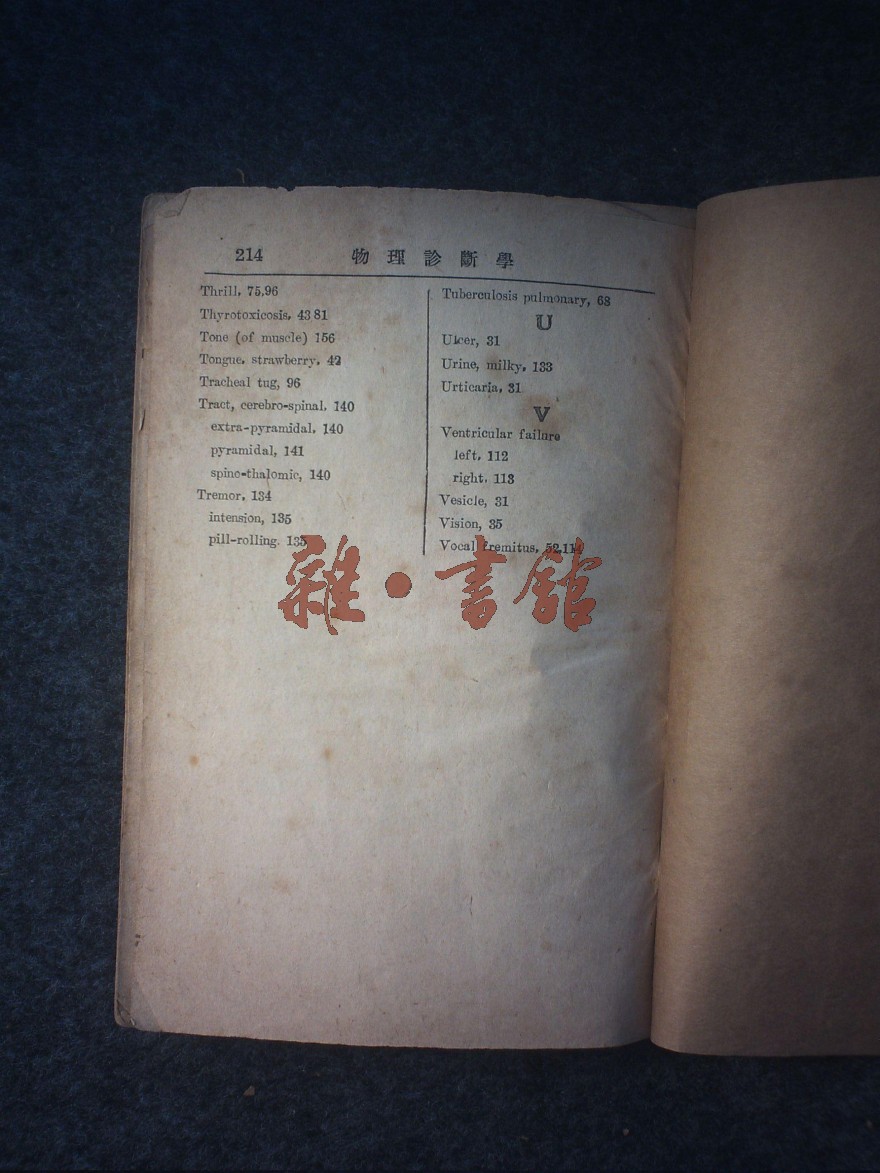 214 物理診斷學
Thrill, 75,96
Thyrotoxicosis, 43 81
Tone (of muscle) 156
Tongue, strawberry, 42
Tracheal tug, 96
Tract, cerebro-spinal, 140
extra-pyramidal, 140
pyramidal, 141
spino-thalomic, 140
Tremor, 134
intension, 135
pill-rolling. 135
Tuberculosis pulmonary, 68
U
Ulcer, 31
Urine, milky, 133
Urticaria, 31
V
Ventricular failure
left, 112
right, 113
Vesicle, 31
Vision, 35
Vocal fremitus, 52,114
雜·書館